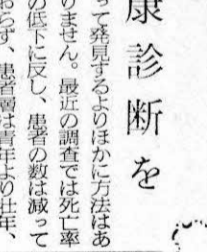 康診断を
って発見するよりほかに方法はあ
りません。最近の調査では死亡率
の低下に反し、患者の数は減って
おらず、患者層は青年より壮年、